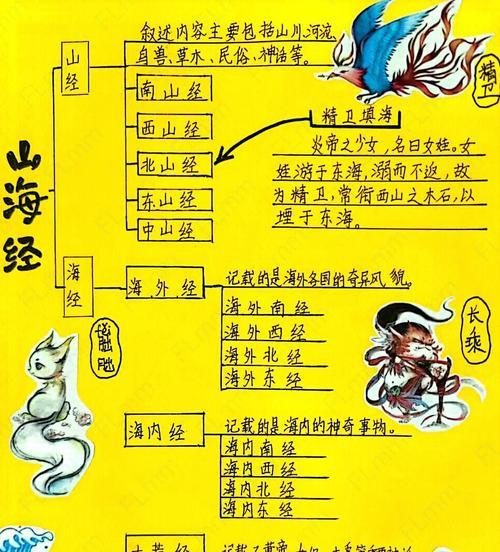 山海经
山经
叙述内容主要包括山川、河流、
鸟兽、草木、民俗、神话等。
南山经
西山经
北山经
东山经
中山经
精卫
精卫填海
炎帝之少女，名曰女娃。女
娃游于东海，溺而不返，故
为精卫，常衔西山之木石，以
堙于东海。
海经
海外经
记载的是海外各国的奇异风貌。
海外南经
海外西经
海外北经
海外东经
长乘
海内经
记载的是海内的神奇事物。
海内南经
海内西经
海内北经
海内东经